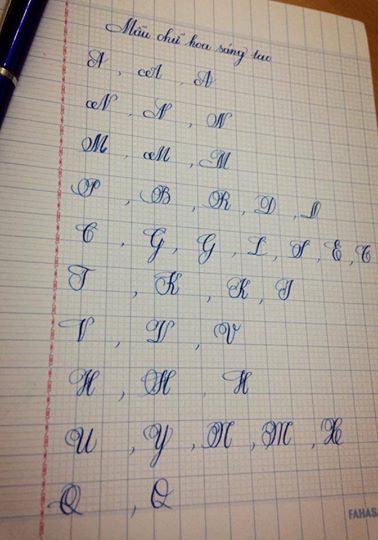 Mẫu chữ hoa sáng tạo
A, A, A
N, N, N
M, M, M
P, B, R, D, D
C, G, G, L, S, E, C
T, K, K, I
V, V, V
H, H, H
U, Y, N, M, X
Q, Q
FAHAS